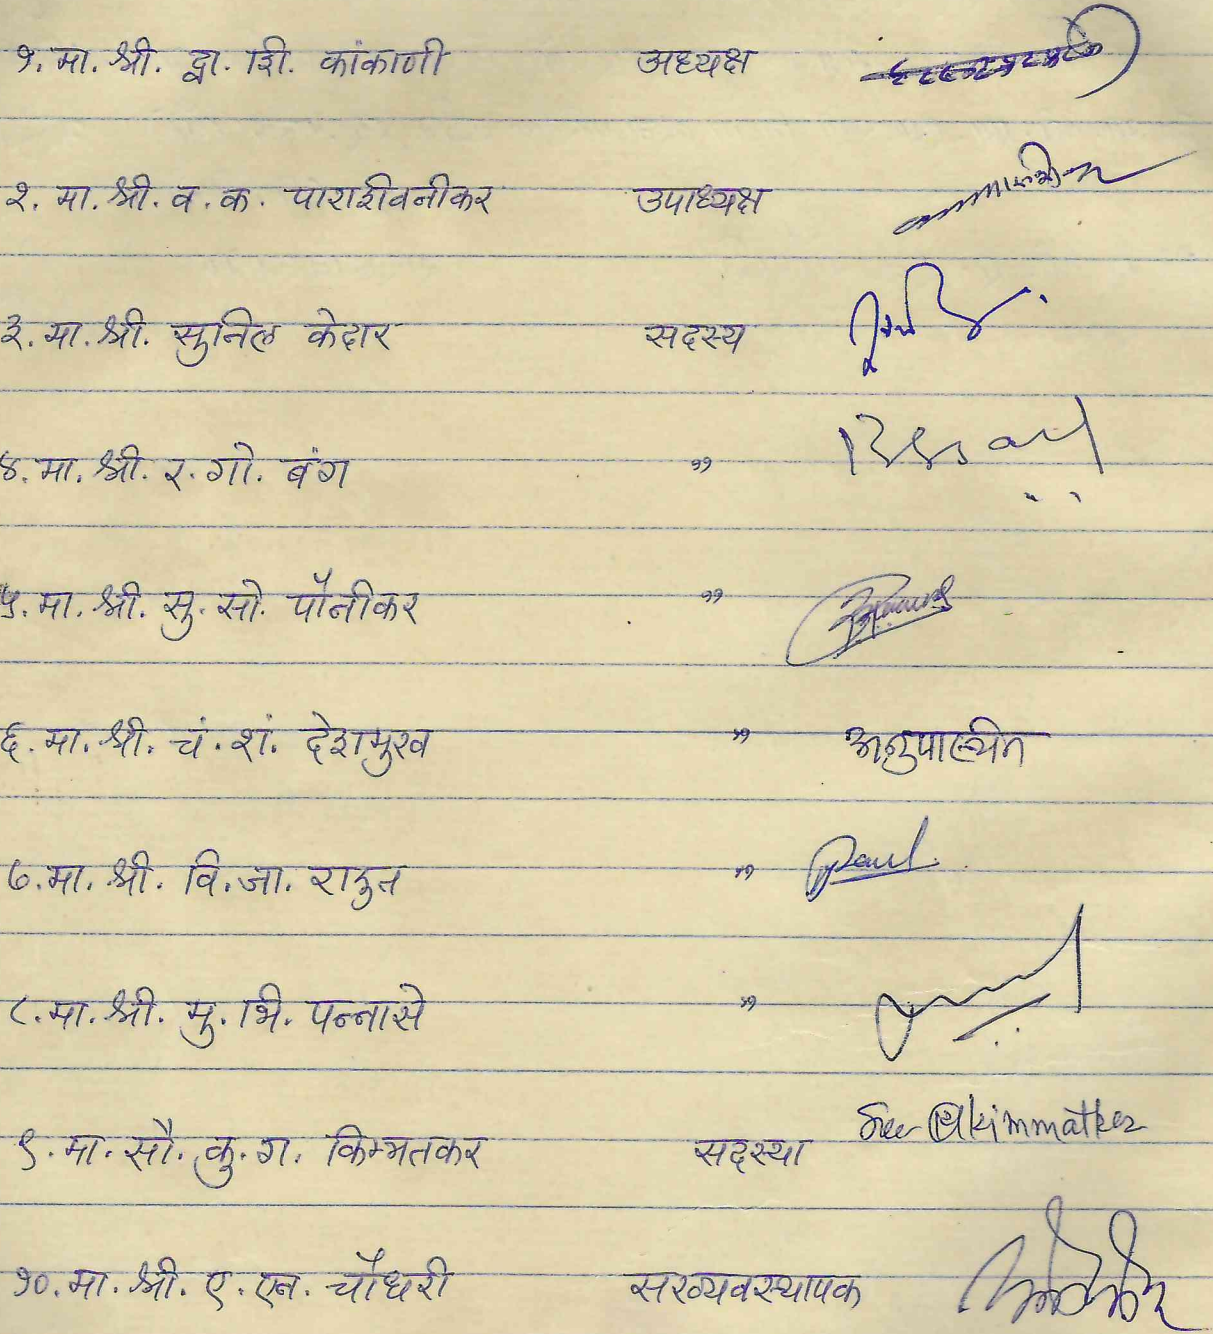 १. मा. श्री. द्वा. शि. कांकाणी अध्यक्ष
२. मा. श्री. व. क. पाराशीवनीकर उपाध्यक्ष
३. मा. श्री. सुनिल केदार सदस्य
४. मा. श्री. र. गो. बंग ,,
५. मा. श्री. सु. सो. पौनीकर ,,
६. मा. श्री. चं. शं. देशमुख ,,
७. मा. श्री. वि. जा. राऊत ,,
८. मा. श्री. मु. भि. पन्नासे ,,
९. मा. सौ. कु. ग. किम्मतकर सदस्या kimmatker
१०. मा. श्री. ए. एन. चौधरी सरव्यवस्थापक